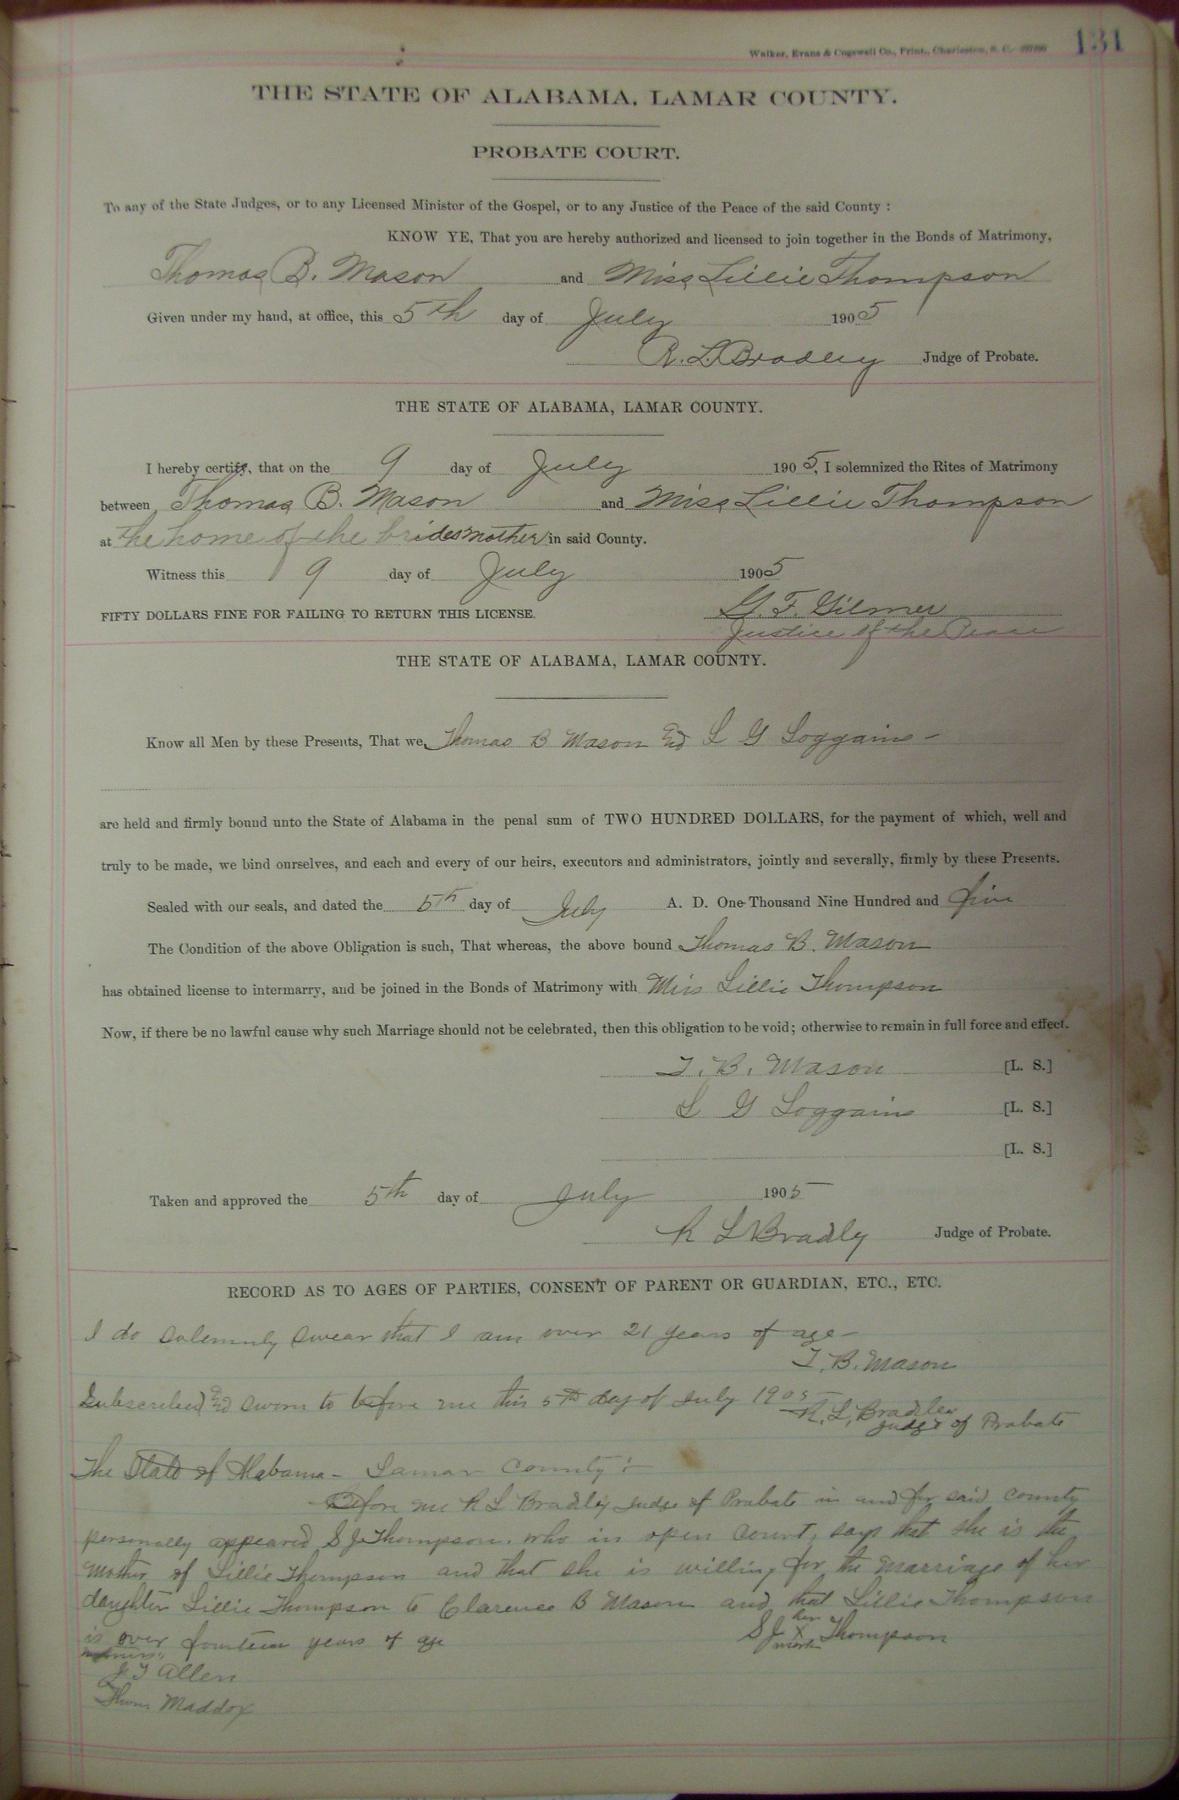 Walker, Evans & Cogswell Co., Print., Charleston, S. C.
131
THE STATE OF ALABAMA, LAMAR COUNTY.
PROBATE COURT.
To any of the State Judges, or to any Licensed Minister of the Gospel, or to any Justice of the Peace of the said County :
KNOW YE, That you are hereby authorized and licensed to join together in the Bonds of Matrimony,
Thomas B. Mason and Miss Lillie Thompson
Given under my hand, at office, this 5th day of July 1905
R. L. Bradley Judge of Probate.
THE STATE OF ALABAMA, LAMAR COUNTY.
I hereby certify, that on the 9 day of July 1905, I solemnized the Rites of Matrimony
between Thomas B. Mason and Miss Lillie Thompson
at the home of the brides mother in said County.
Witness this 9 day of July 1905
FIFTY DOLLARS FINE FOR FAILING TO RETURN THIS LICENSE. G. F. Gilmer
Justice of the Peace
THE STATE OF ALABAMA, LAMAR COUNTY.
Know all Men by these Presents, That we, Thomas B Mason and L G Loggains -
are held and firmly bound unto the State of Alabama in the penal sum of TWO HUNDRED DOLLARS, for the payment of which, well and
truly to be made, we bind ourselves, and each and every of our heirs, executors and administrators, jointly and severally, firmly by these Presents.
Sealed with our seals, and dated the 5th day of July A. D. One Thousand Nine Hundred and five
The Condition of the above Obligation is such, That whereas, the above bound Thomas B. Mason
has obtained license to intermarry, and be joined in the Bonds of Matrimony with Miss Lillie Thompson
Now, if there be no lawful cause why such Marriage should not be celebrated, then this obligation to be void; otherwise to remain in full force and effect.
T. B. Mason [L. S.]
L G Loggains [L. S.]
[L. S.]
Taken and approved the 5th day of July 1905
R L Bradley Judge of Probate.
RECORD AS TO AGES OF PARTIES, CONSENT OF PARENT OR GUARDIAN, ETC., ETC.
I do solemnly swear that I am over 21 years of age -
T. B. Mason
Subscribed and sworn to before me this 5th day of July 1905
R. L. Bradley
Judge of Probate
The State of Alabama - Lamar County :-
Before me R L Bradley Judge of Probate in and for said county
personally appeared S J Thompson, who in open court, says that she is the
mother of Lillie Thompson and that she is willing for the marriage of her
daughter Lillie Thompson to Clarence B Mason and that Lillie Thompson
is over fourteen years of age S J her X mark Thompson
witness:
J T Allen
Thos Maddox